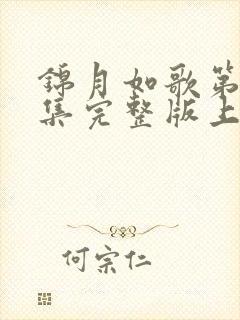 錦月如歌第
集完整版上
何宗仁